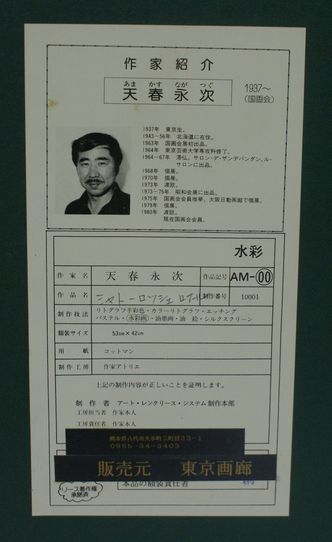 作家紹介
あま かす なが つぐ
天春永次
1937〜
(国画会)
1937年 東京生。
1943-56年 北海道に在住。
1963年 国画会展初出品。
1964年 東京芸術大学専攻科修了。
1964-67年 滞仏。サロン・デ・ザンデパンダン、ル・
サロンに出品。
1968年 個展。
1970年 個展。
1973年 渡欧。
1973-75年 昭和会展に出品。
1975年 国画会会員推挙、大阪日動画廊で個展。
1979年 個展。
1980年 渡欧。
現在国画会会員。
水彩
作家名 天春永次 作品記号 AM-00
作品名 シャトーロンシュ 制作番号 10001
制作技法 リトグラフ手彩色・カラーリトグラフ・エッチング
パステル・水彩画・油墨画・油絵・シルクスクリーン
額装サイズ 53cm×42cm
用紙 コットマン
制作工房 作家アトリエ
上記の制作内容が正しいことを証明します。
制作者 アート・レンタリース・システム制作本部
工房担当者 作家本人
工房責任者 作家本人
熊本県八代市大手町二町目33-1
0965-34-3403
販売元 東京画廊
リース著作権
承認済
本品の額装責任者